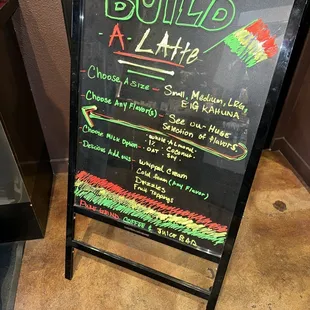 BUILD
-A- LAttE
- Choose, A size - Small, Medium, LRG,
BIG KAHUNA
- Choose Any Flavors! - See our HUGE
Selection of flavors!
- Choose Milk Option - Whole Almond
½ Coconut
OAT - Soy
- Delicious Add ins: - Whipped Cream
Cold foam (Any Flavor)
Drizzles
Fruit Toppings
COFFEE & JUICE BAR